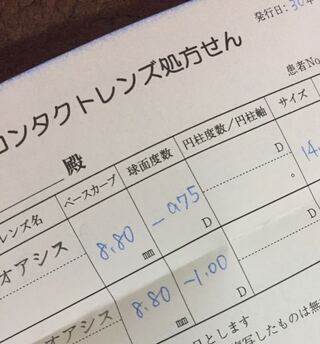 発行日：30年
コンタクトレンズ処方せん
患者No
殿
レンズ名 ベースカーブ 球面度数 円柱度数／円柱軸 サイズ
オアシス 8.80 mm -0.75 D D ° 14.
オアシス 8.80 mm -1.00 D D
とします
写したものは無